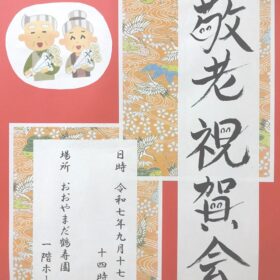 敬老祝賀会
日時 令和七年九月十七
十四時
場所 おおやまだ鶴寿園
一階ホー